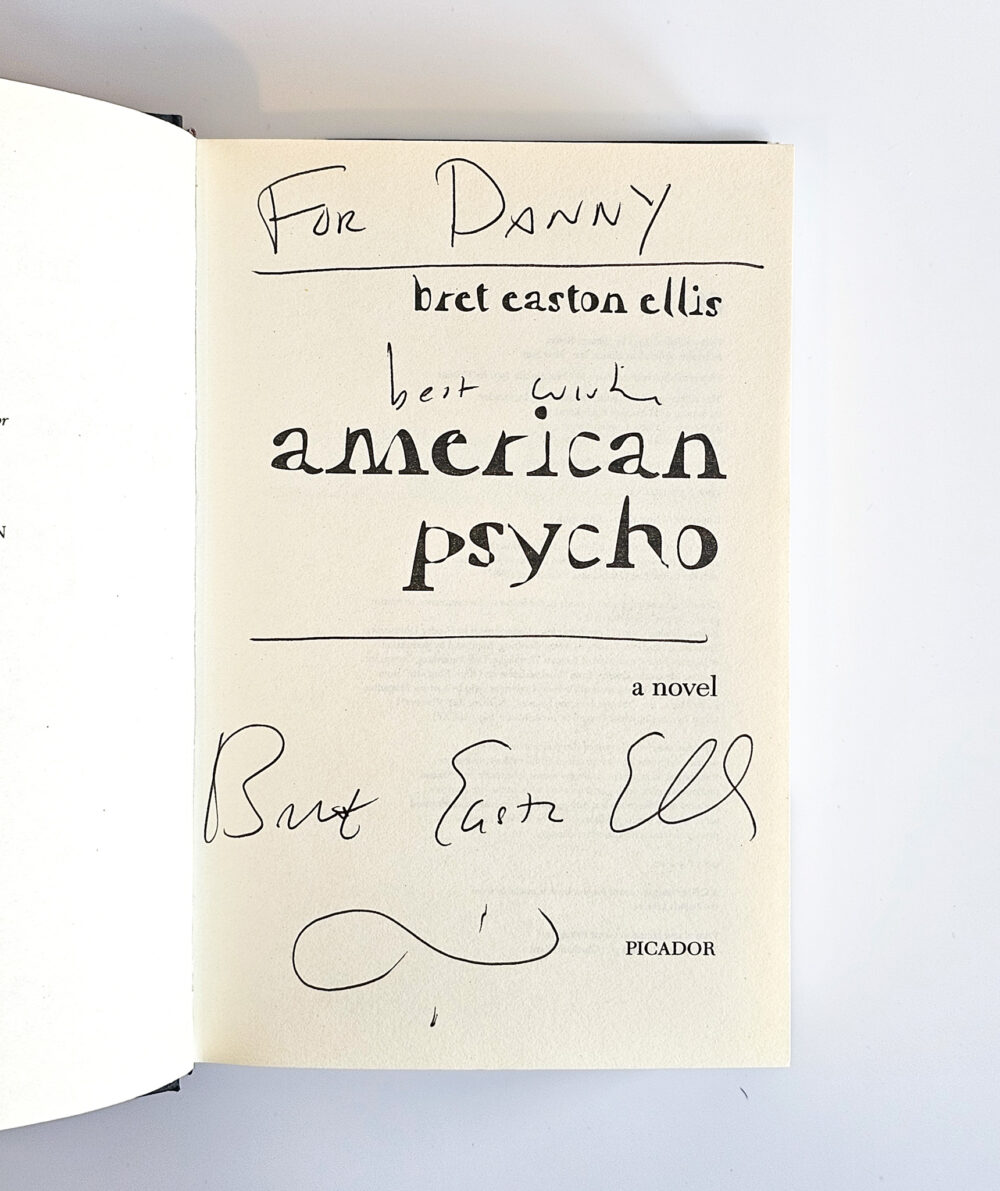 or
N
For Danny
bret easton ellis
best wishes
american
psycho
a novel
Bret Easton Ellis
PICADOR